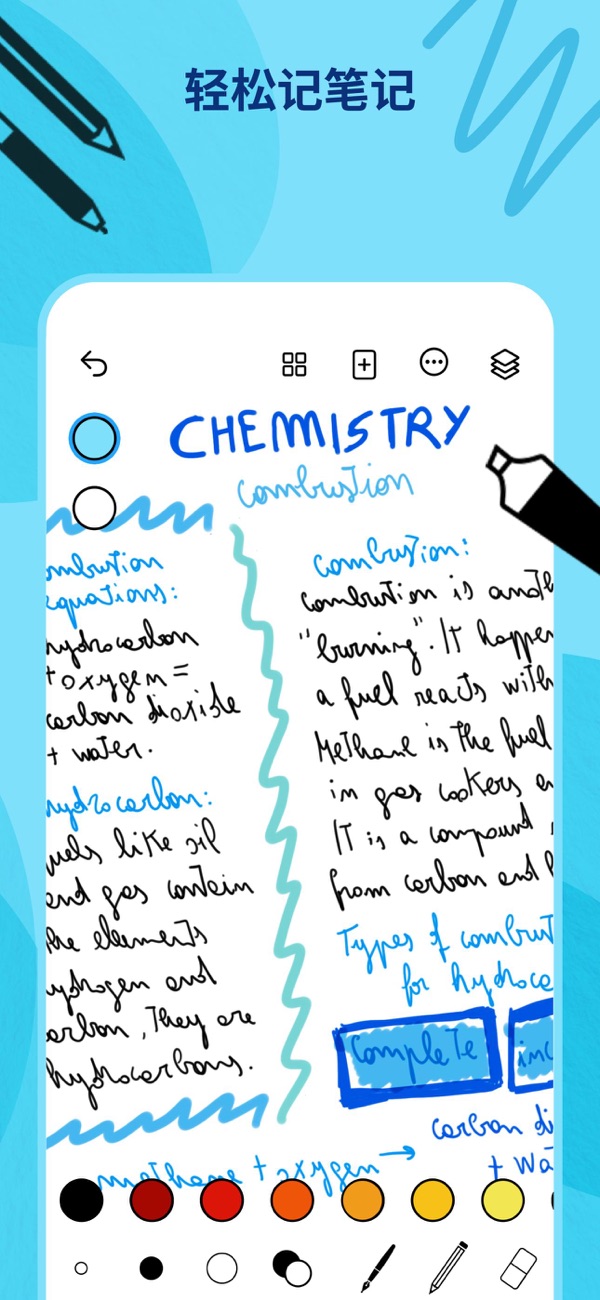 轻松记笔记
CHEMISTRY
combustion
mbustion
equations:
hydrocarbon
+ oxygen =
carbon dioxide
+ water.
hydrocarbon:
uels like oil
and gas contain
the elements
ydrogen and
arbon, They are
hydrocarbons.
combustion:
combustion is anoth
"burning". It happen
a fuel reacts with
Methane is the fuel
in gas cookers a
It is a compound
from carbon and h
Types of combust
for hydroca
Complete
inc
carbon di
methane + oxygen →
+ Wa